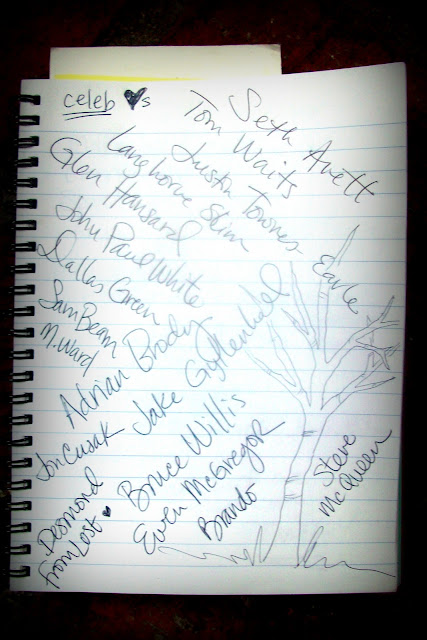 celeb ♥s
Seth Avett
Tom Waits
Justin Townes
Earle
Langhorne Slim
Glen Hansard
John Paul White
Dallas Green
Sam Beam
M. Ward
Adrian Brody
Jake Gyllenhall
Jon Cusak
Bruce Willis
Ewen McGregor
Brando
Steve
McQueen
Desmond
from Lost ♥